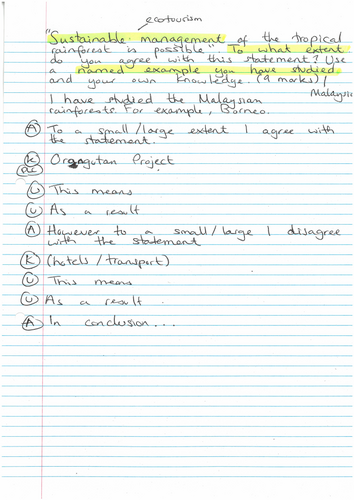 ecotourism
"Sustainable management of the tropical
rainforest is possible" To what extent
do you agree with this statement? Use
a named example you have studied
and your own knowledge. (9 marks)
Malaysia
I have studied the Malaysian
rainforests. For example, Borneo.
A To a small/large extent I agree with
the statement.
K Orangutan Project
U This means
U As a result
A However to a small/large I disagree
with the statement
K (hotels/transport)
U This means
U As a result
A In conclusion...